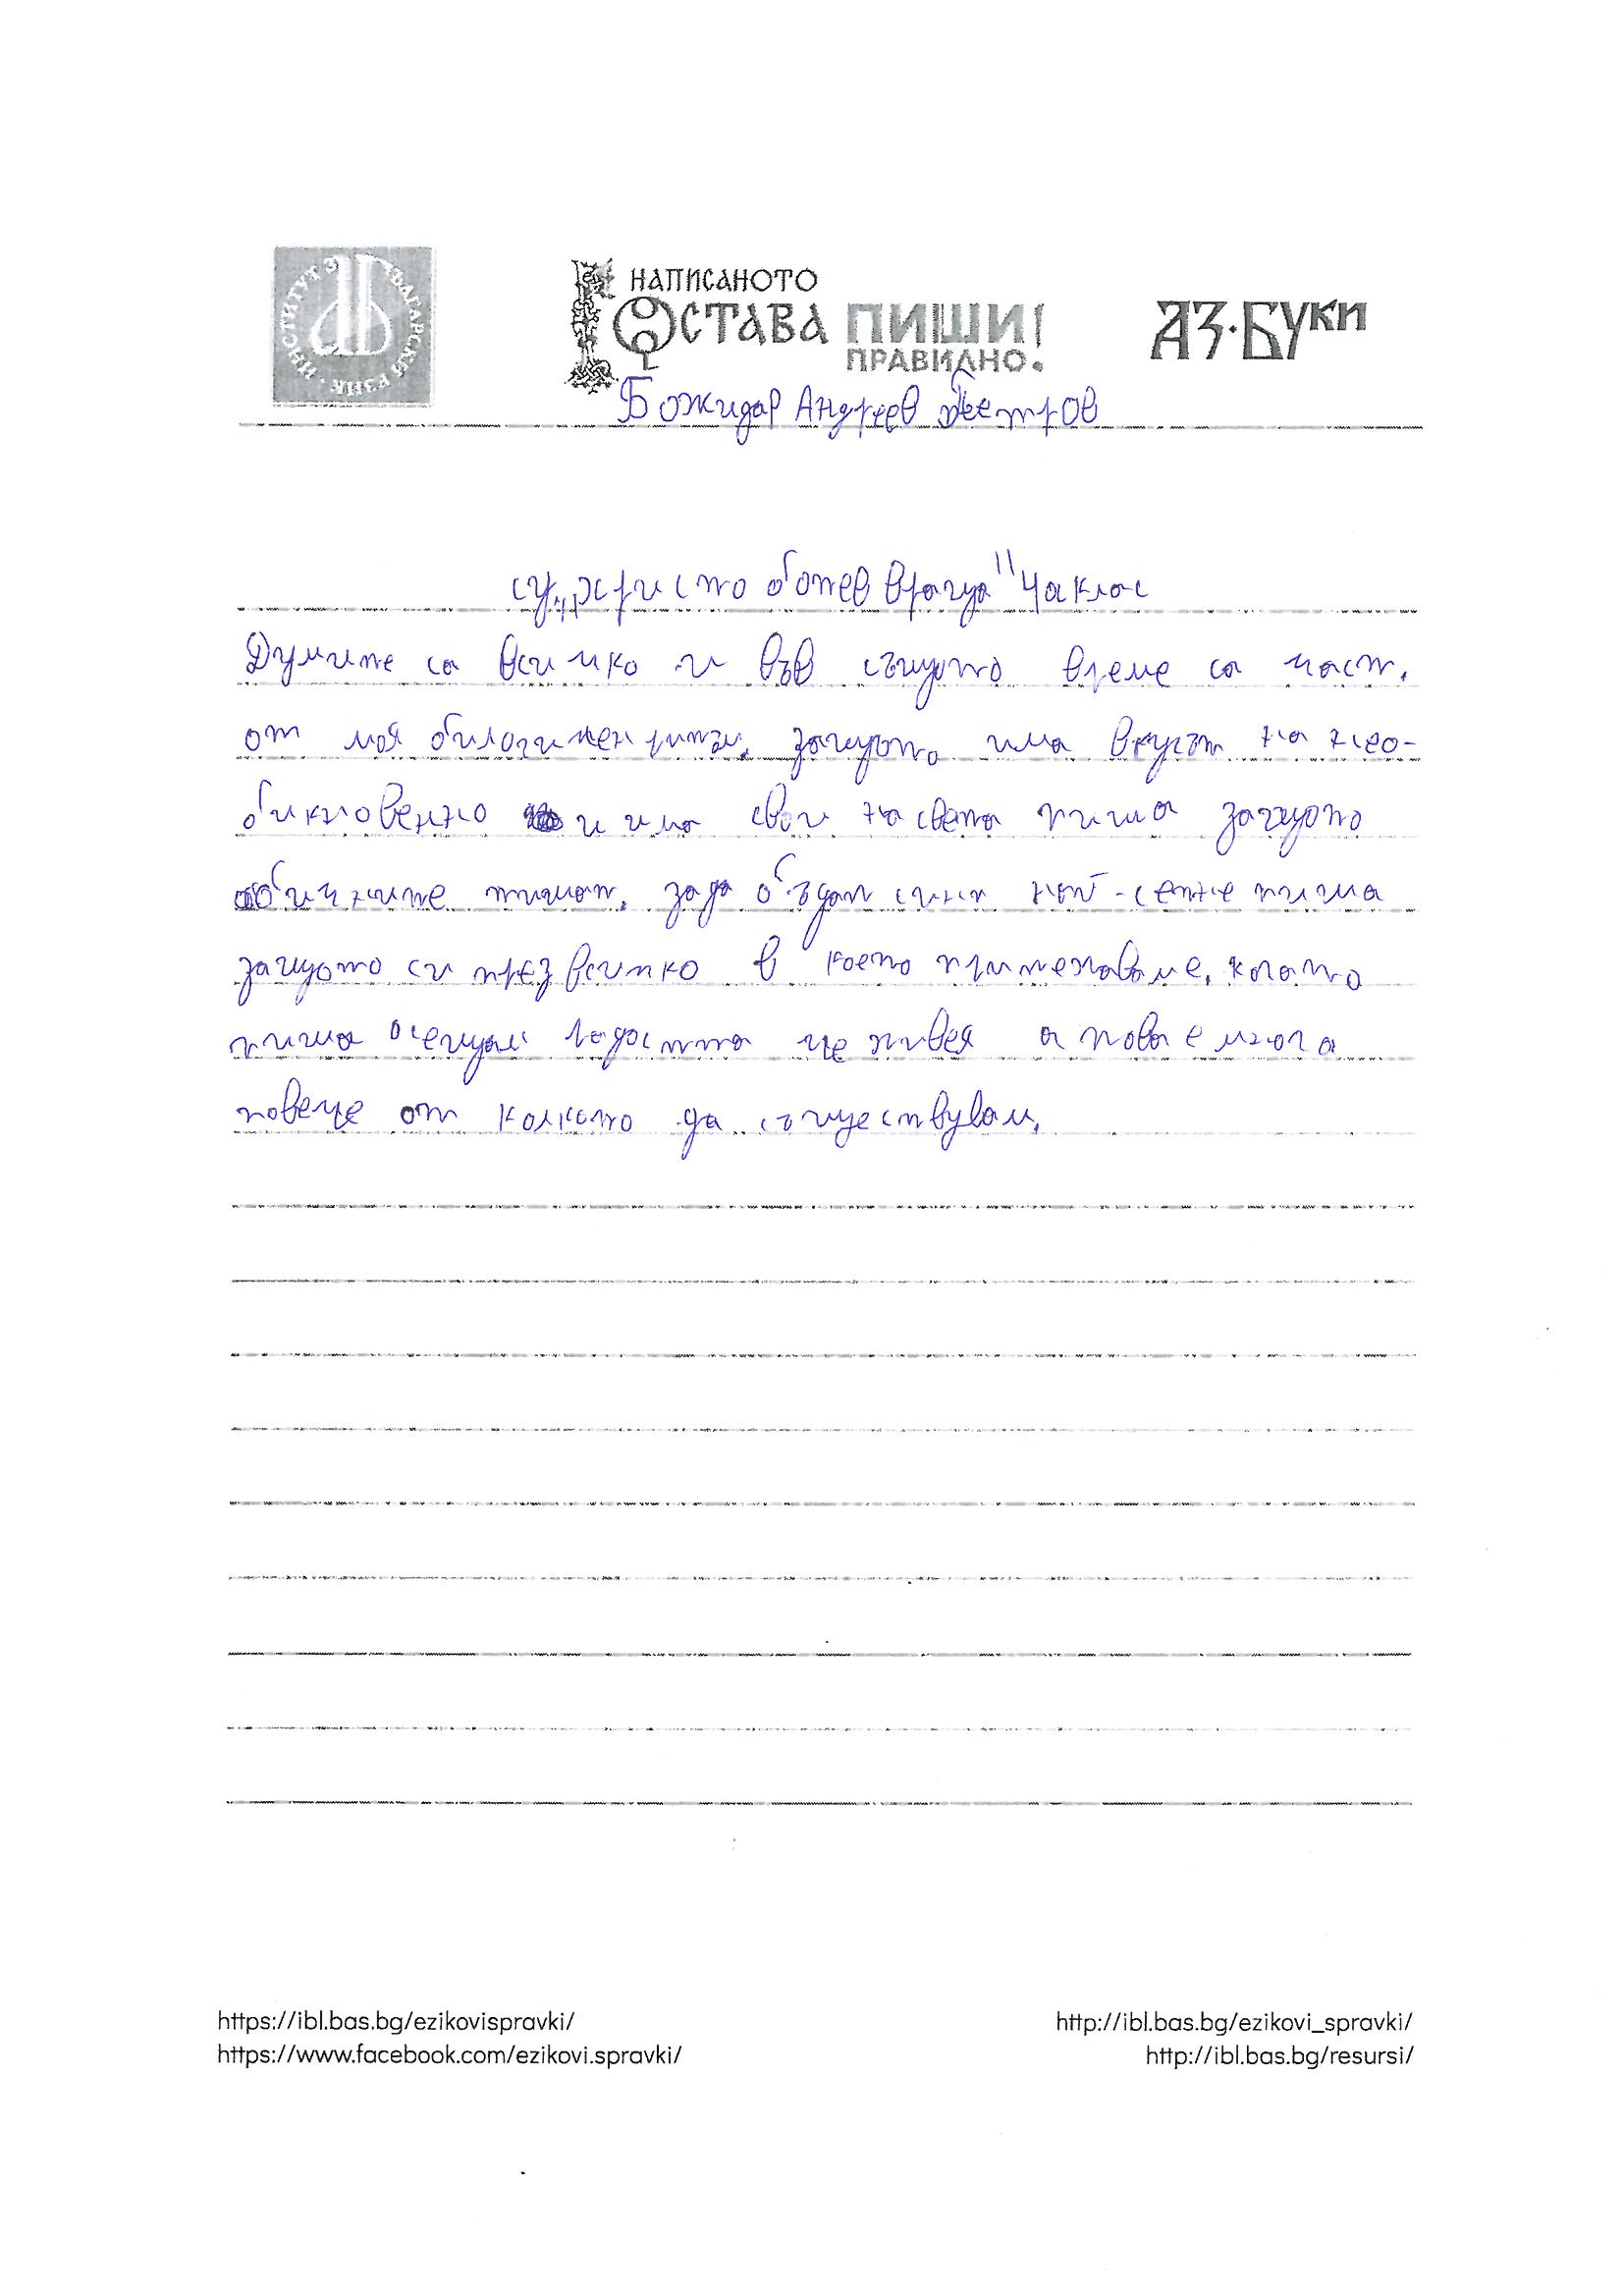 ИНСТИТУТ ЗА БЪЛГАРСКИ ЕЗИК
НАПИСАНОТО
ОСТАВА ПИШИ
ПРАВИЛНО!
АЗ·БУКИ
Божидар Андреев Петров
су „христо ботев враца" 4а клас
Думите са всичко и във същото време са част.
от моя билогичен ритъм, защото има вкусът на нео-
бикновенно и има свои на света пиша защото
обичните пишат, за да бъдат силни най-сетне пиша
защото си през всичко в което притежаваме, когато
пиша осещам радостта че живея а това е много
повече от колкото да съществувам,
https://ibl.bas.bg/ezikovispravki/
https://www.facebook.com/ezikovi.spravki/
http://ibl.bas.bg/ezikovi_spravki/
http://ibl.bas.bg/resursi/